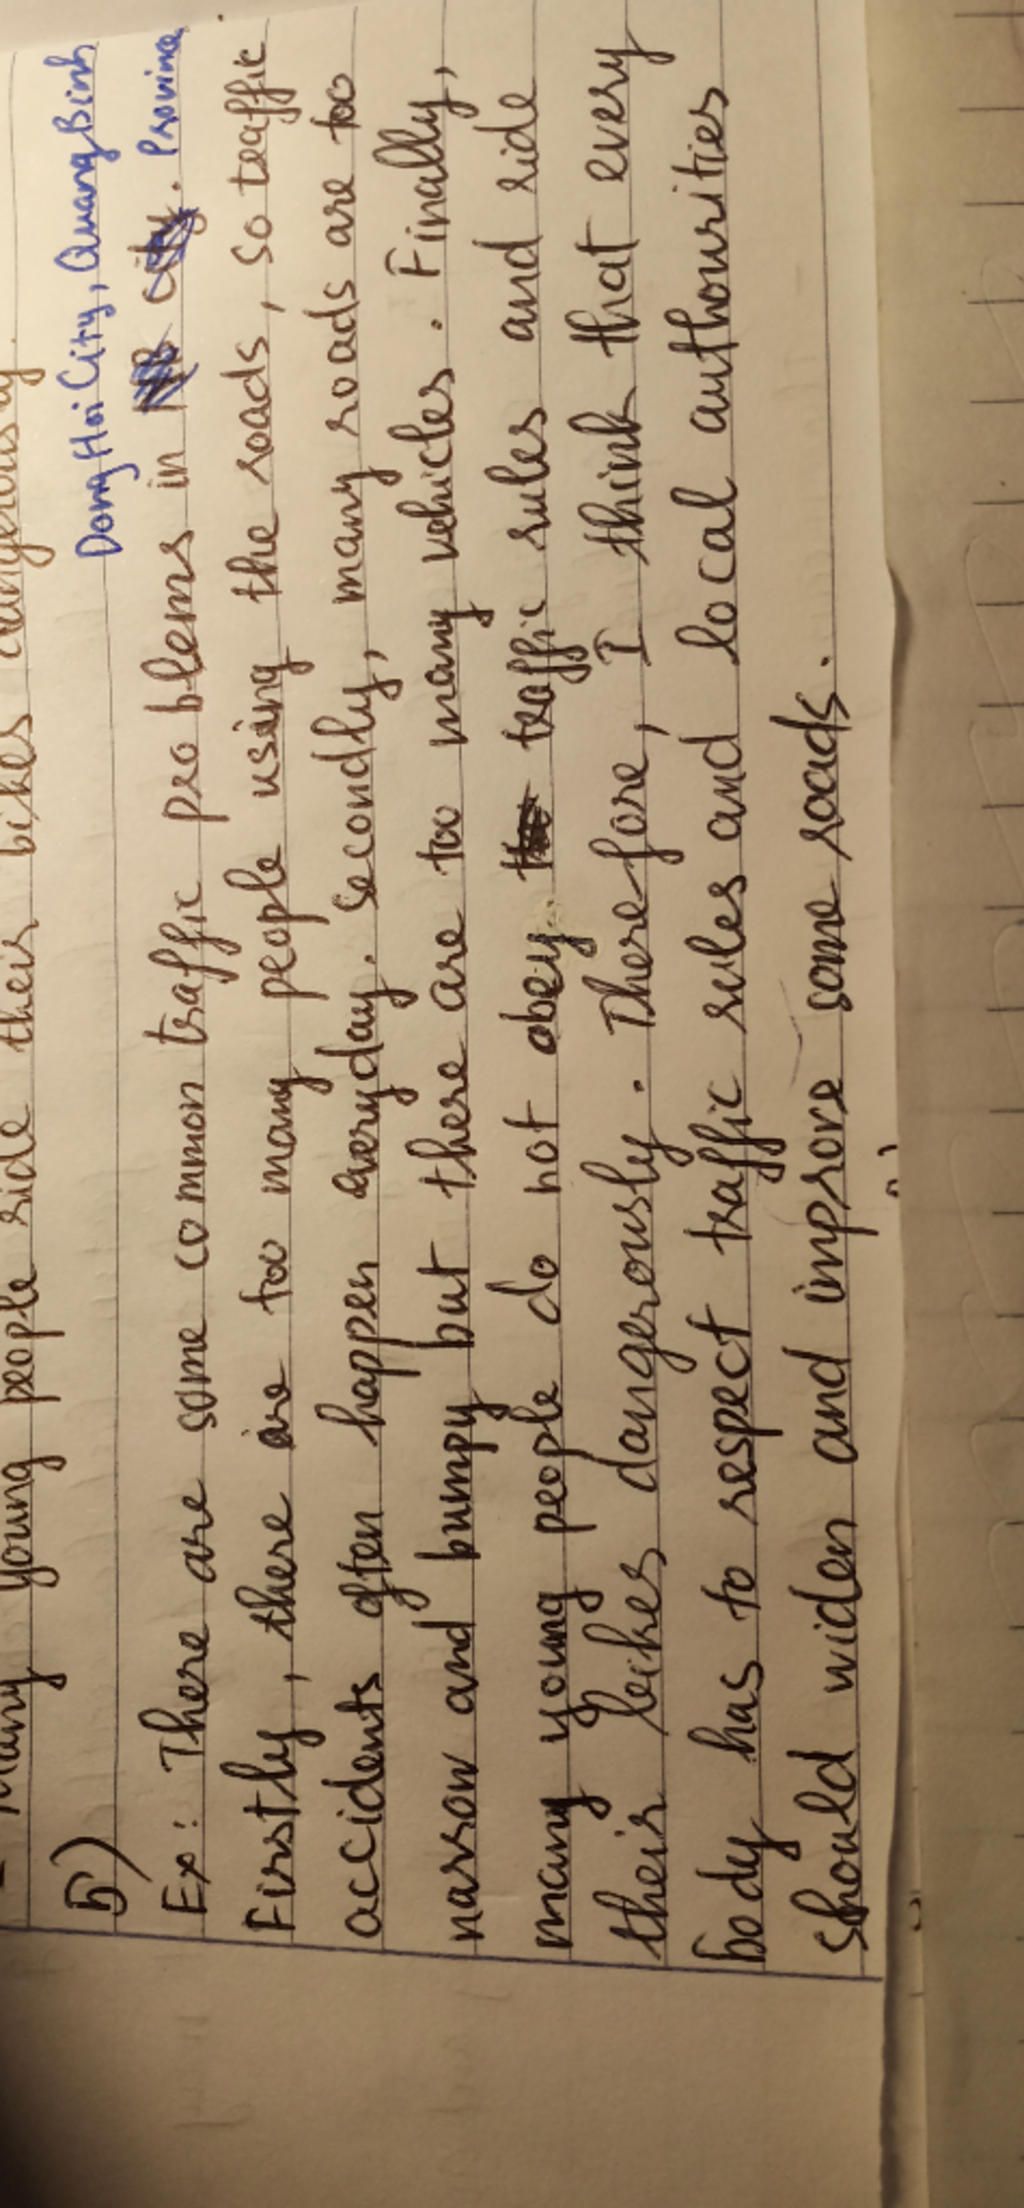 Many young people ride their bikes dangerously.
b)
Dong Hoi City, Quang Binh
Ex: There are some common traffic problems in NB City. Province
Firstly, there are too many people using the roads, so traffic
accidents often happen everyday. Secondly, many roads are too
narrow and bumpy but there are too many vehicles. Finally,
many young people do not obey the traffic rules and ride
their bikes dangerously. Therefore, I think that every
body has to respect traffic rules and local authourities
should widen and improve some roads.